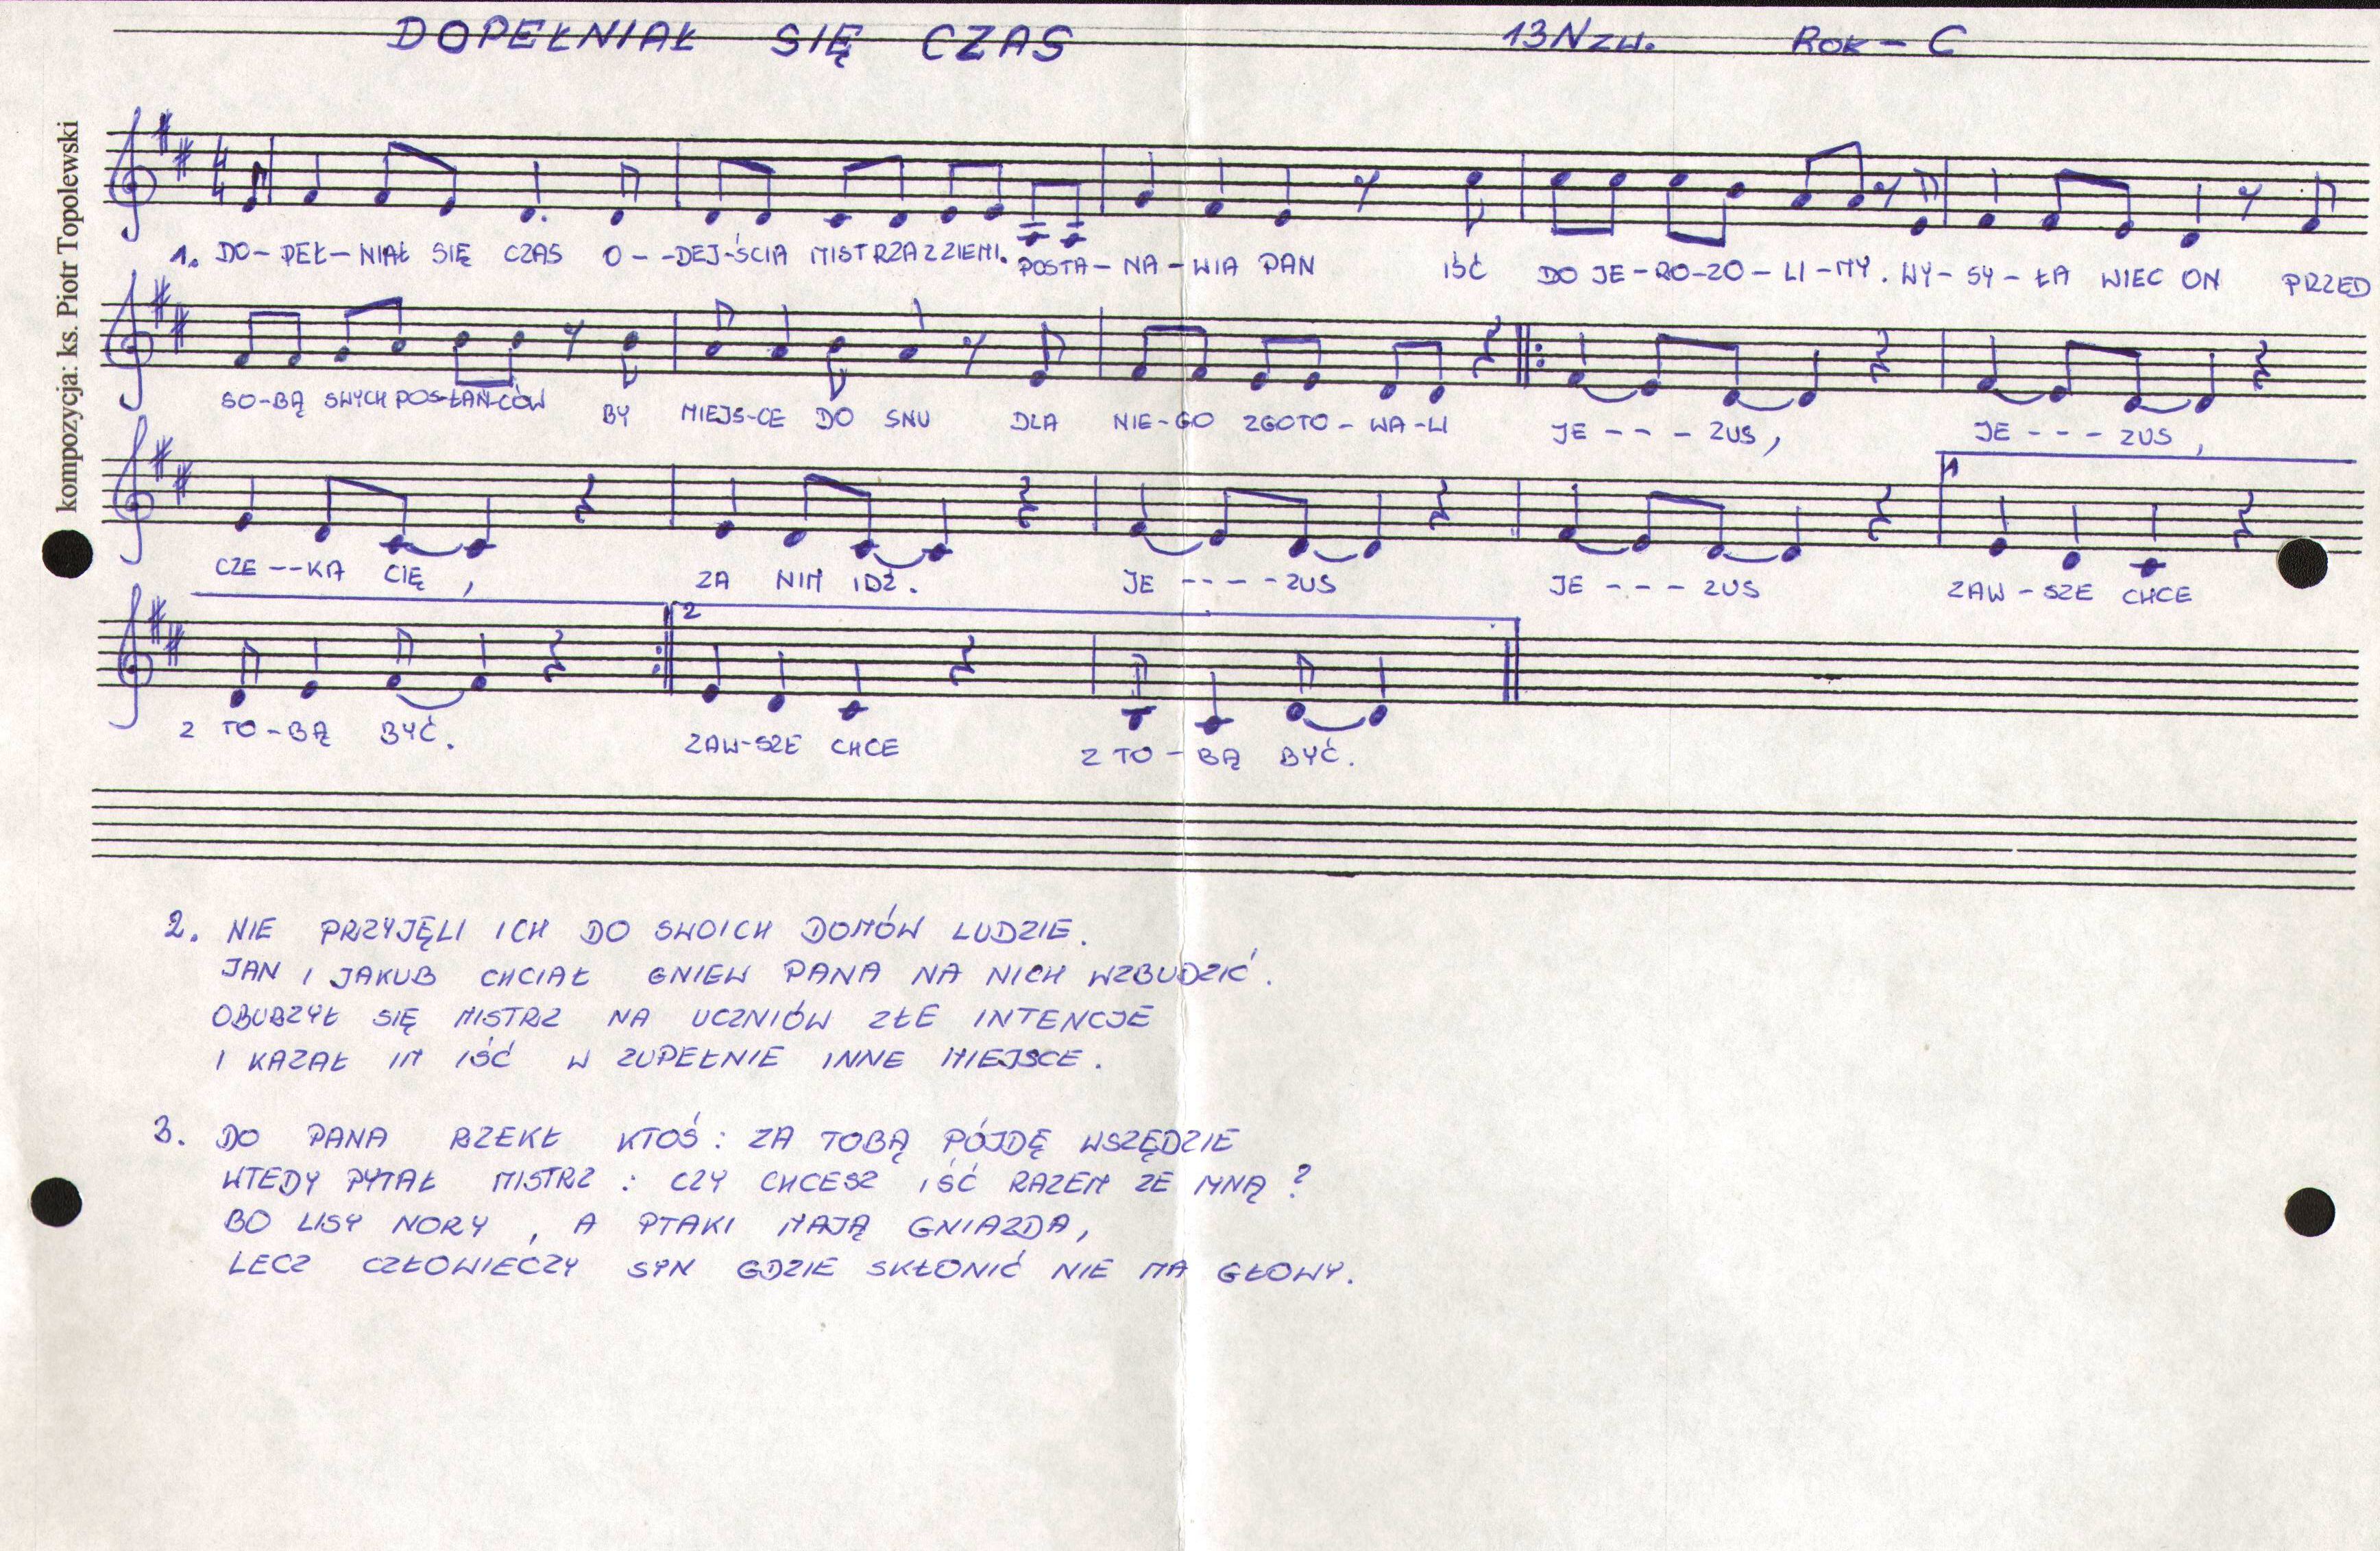 DOPEŁNIAŁ SIĘ CZAS 13 N ZW. ROK - C
kompozycja: ks. Piotr Topolewski
1. DO-PEŁ-NIAŁ SIĘ CZAS O--DEJ-ŚCIA MISTRZA Z ZIEMI. POSTA-NA-WIA PAN IŚĆ DO JE-RO-ZO-LI-MY. WY-SY-ŁA WIEC ON PRZED
SO-BĄ SWYCH POS-ŁAŃ-CÓW BY MIEJS-CE DO SNU DLA NIE-GO ZGOTO-WA-LI JE---ZUS, JE---ZUS,
1
CZE--KA CIĘ, ZA NIM IDŹ. JE----ZUS JE---ZUS ZAW-SZE CHCE
2
Z TO-BĄ BYĆ. ZAW-SZE CHCE Z TO-BĄ BYĆ.
2. NIE PRZYJĘLI ICH DO SWOICH DOMÓW LUDZIE.
JAN I JAKUB CHCIAŁ GNIEW PANA NA NICH WZBUDZIĆ.
OBURZYŁ SIĘ MISTRZ NA UCZNIÓW ZŁE INTENCJE
I KAZAŁ IM IŚĆ W ZUPEŁNIE INNE MIEJSCE.
3. DO PANA RZEKŁ KTOŚ: ZA TOBĄ PÓJDĘ WSZĘDZIE
WTEDY PYTAŁ MISTRZ: CZY CHCESZ IŚĆ RAZEM ZE MNĄ?
BO LISY NORY, A PTAKI MAJĄ GNIAZDA,
LECZ CZŁOWIECZY SYN GDZIE SKŁONIĆ NIE MA GŁOWY.